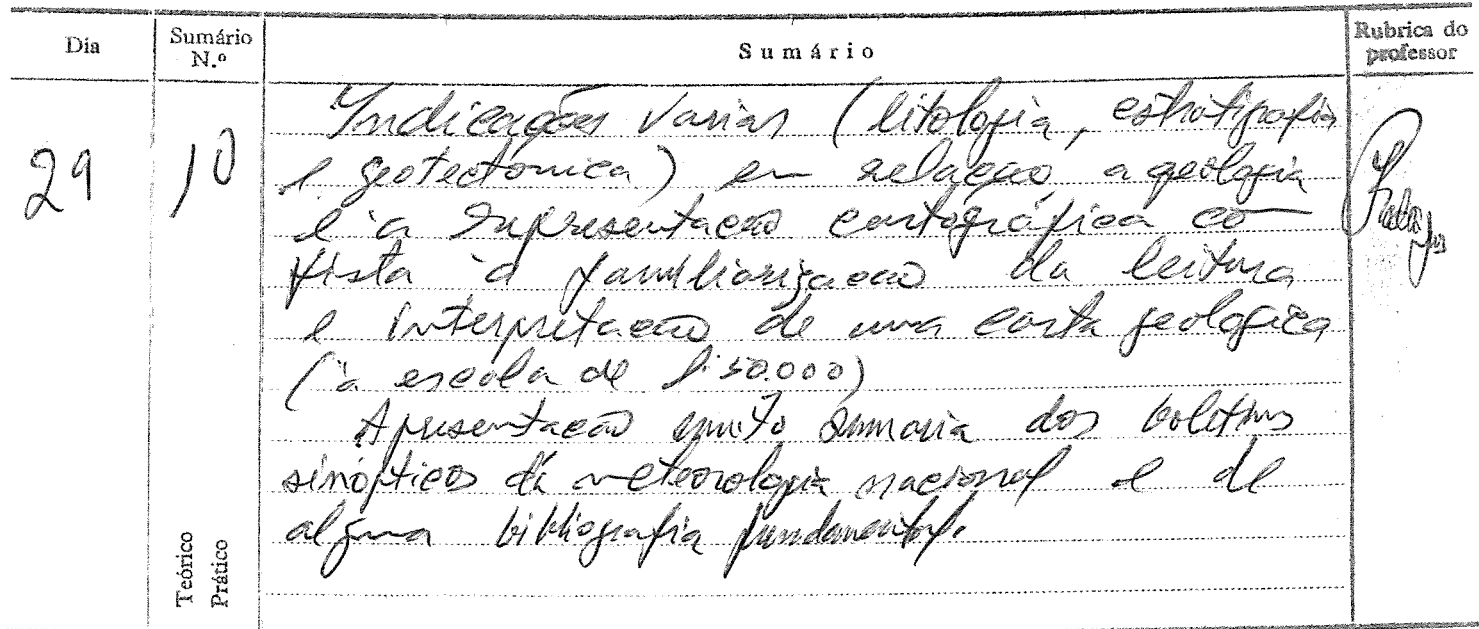 Dia
Sumário N.º
Sumário
Rubrica do professor
29
10
Indicações varias (litologia, estratigrafia
e geotectónica) em relação a geologia
e à representação cartográfica co
vista à familiarização da leitura
e interpretação de uma carta geológica
(à escala de 1:50.000)
Apresentação muito sumaria dos boletins
sinópticos da meteorologia nacional e de
alguma bibliografia fundamental.
Teórico
Prático